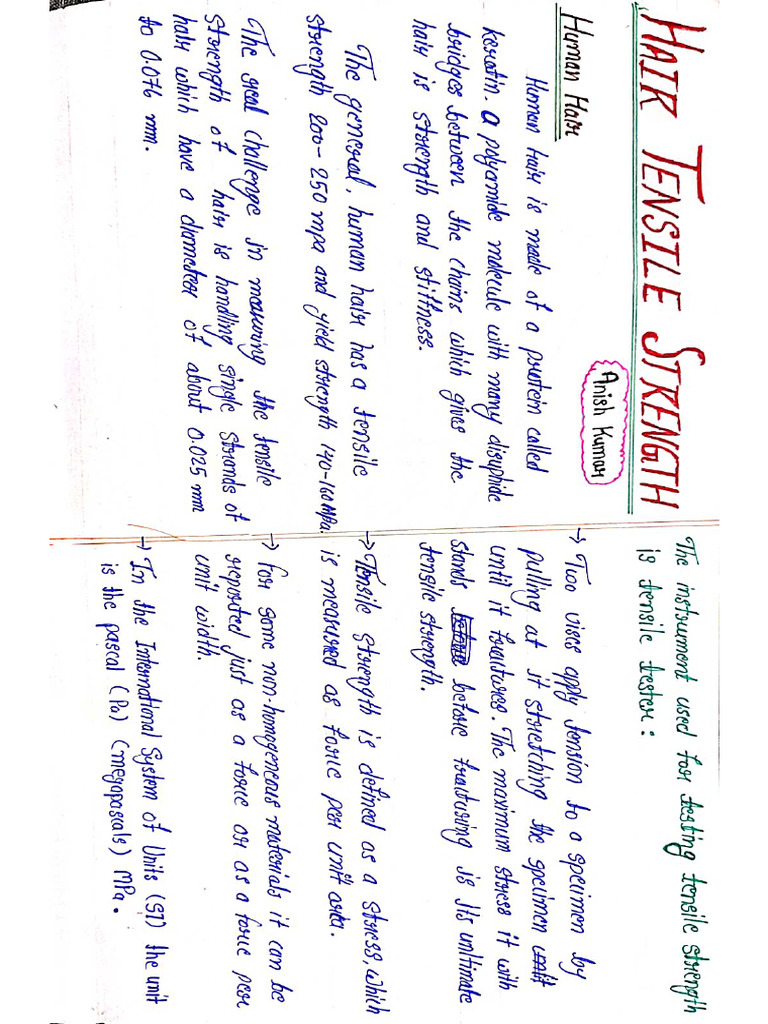 HAIR TENSILE STRENGTH
Anish Kumar
Human Hair
Human hair is made of a protein called
keratin. a polyamide molecule with many disuphide
bridges between the chains which gives the
hair is strength and stiffness.
The general, human hair has a tensile
strength 200-250 mpa and yield strength 140-160 MPa.
The great challenge in measuring the tensile
strength of hair is handling single strands of
hair which have a diameter of about 0.025 mm
to 0.076 mm.
The instrument used for testing tensile strength
is tensile tester:
→ Two vises apply tension to a specimen by
pulling at it stretching the specimen
until it fractures. The maximum stress it with
stands before fracturing is its unltimate
tensile strength.
→ Tensile strength is defined as a stress, which
is measured as force per unit area.
→ for some non-homogeneous materials it can be
reported just as a force or as a force per
unit width.
→ In the International System of Units (SI) the unit
is the pascal (Pa) (megapascals) MPa.